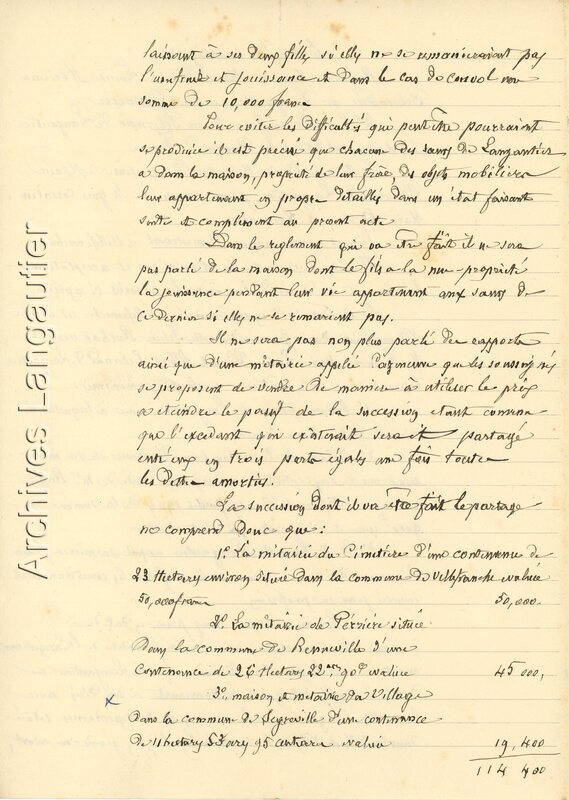 laissant à ses deux filles si elles ne se remarieraient pas
l'usufruit et jouissance et dans le cas de convol une
somme de 10,000 francs
Pour éviter les difficultés qui peut être pourraient
se produire il est précisé que chacune des sœurs de Langautier
a dans la maison, propriété de leur frère, des objets mobiliers
leur appartenant en propre détaillés dans un état faisant
suite et complément au présent acte
Dans le règlement qui va être fait il ne sera
pas parlé de la maison dont le fils a la nue-propriété
la jouissance pendant leur vie appartenant aux sœurs de
ce dernier si elles ne se remarient pas.
Il ne sera pas non plus parlé des rapports
ainsi que d'une métairie appelée que les soussignés
se proposent de vendre de manière à utiliser le prix
a eteindre le passif de la succession etant convenu
que l'excédant qui existerait serait partagé
entre eux en trois parts égales une fois toutes
les dettes amorties.
La succession dont il va être fait le partage
ne comprend donc que :
1º La métairie du Cimetière d'une contenance de
23 hectares environ située dans la commune de Villefranche évaluée
50,000 francs 50,000.
2º La métairie de située
dans la commune de Renneville d'une
contenance de 26 hectares 22 ares 90 c évaluée 45 000,
3º maison et métairie du Village
dans la commune de d'une contenance
de 11 hectares 53 ares 95 centiares évalué 19,400
114 400
Archives Langautier